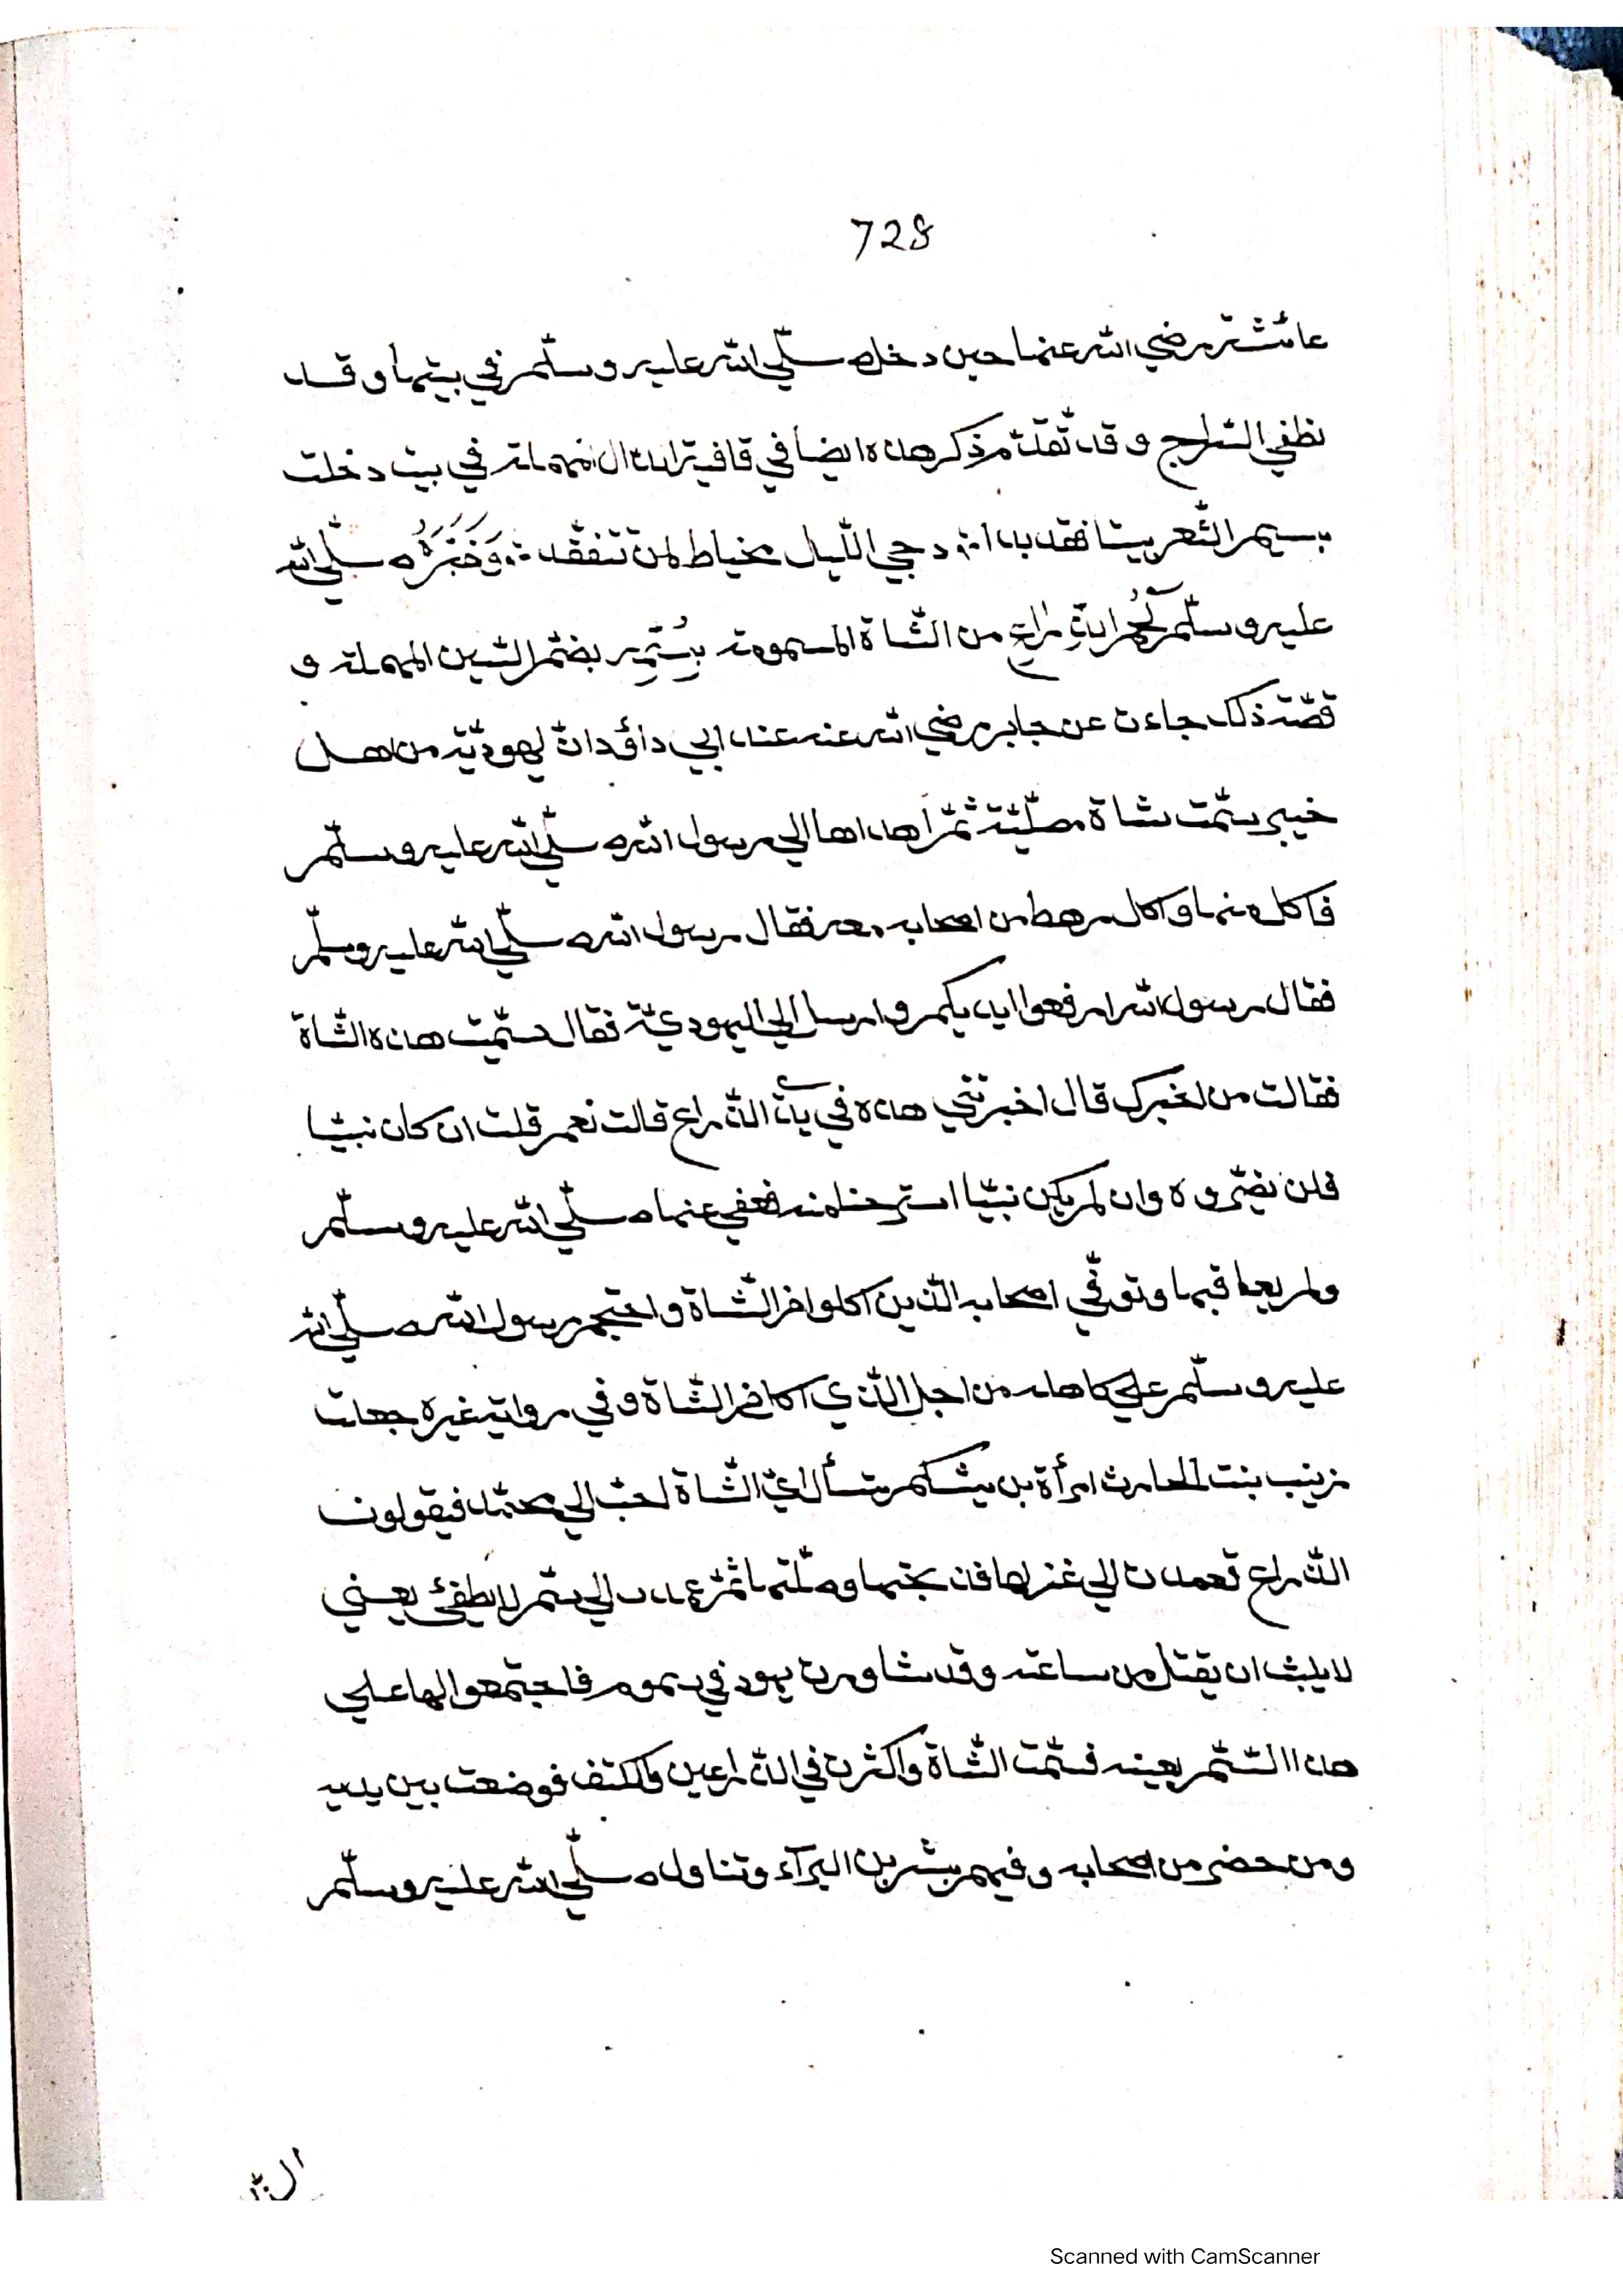 728
عائشة رضي الله عنها حين دخل صلّي الله عليه وسلّم في بيتها وقد
نظفي السّراج وقد تقدّم ذكر هذه ايضا في قافية الدال المهملة في بيت دخلت
دجي اللّيل مخياط لمن تتفقد وَخَبَّرَهُ صلّي الله
عليه وسلّم لَحْمُ الذِّرَاعِ من الشّاة المسمومة بِسُمِّهِ بضمّ السّين المهملة و
قصّة ذلك جاءت عن جابر رضي الله عنه عند ابي داؤد انّ يهوديّة من اهل
خيبر سمّت شاة مصليّة ثمّ اهداها الي رسول الله صلّي الله عليه وسلّم
فاكل منها واكل رهط من اصحابه معه فقال رسول الله صلّي الله عليه وسلّم
فقال رسول الله ارفعوا ايديكم وارسل الي اليهوديّة فقال سمّيت هذه الشّاة
فقالت من اخبرك قال اخبرتني هذه في يدي الذّراع قالت نعم قلت ان كان نبيّا
فلن يضرّه وان لم يكن نبيّا استرحنا منه فعفي عنها صلّي الله عليه وسلّم
ولم يعاقبها وتوفّي اصحابه الذّين اكلوا من الشّاة واحتجم رسول الله صلّي الله
عليه وسلّم علي كاهله من اجل الذّي اكل من الشّاة وفي رواية غيره جعلت
زينب بنت الحارث امرأة بن مشكم تسأل ايّ الشّاة احبّ الي محمّد فيقولون
الذّراع فعمدت الي عنز لها فذبحتها وصلّتها ثمّ عمدت الي سمّ لا يطفئ يعني
لا يلبث ان يقتل من ساعته وقد شاورت يهود في سموم فاجتمعوا لها علي
هذا السّمّ بعينه فسمّت الشّاة واكثرت في الذّراعين والكتف فوضعت بين يديه
ومن حضر من اصحابه وفيهم بشر بن البرآء وتناول صلّي الله عليه وسلّم
Scanned with CamScanner